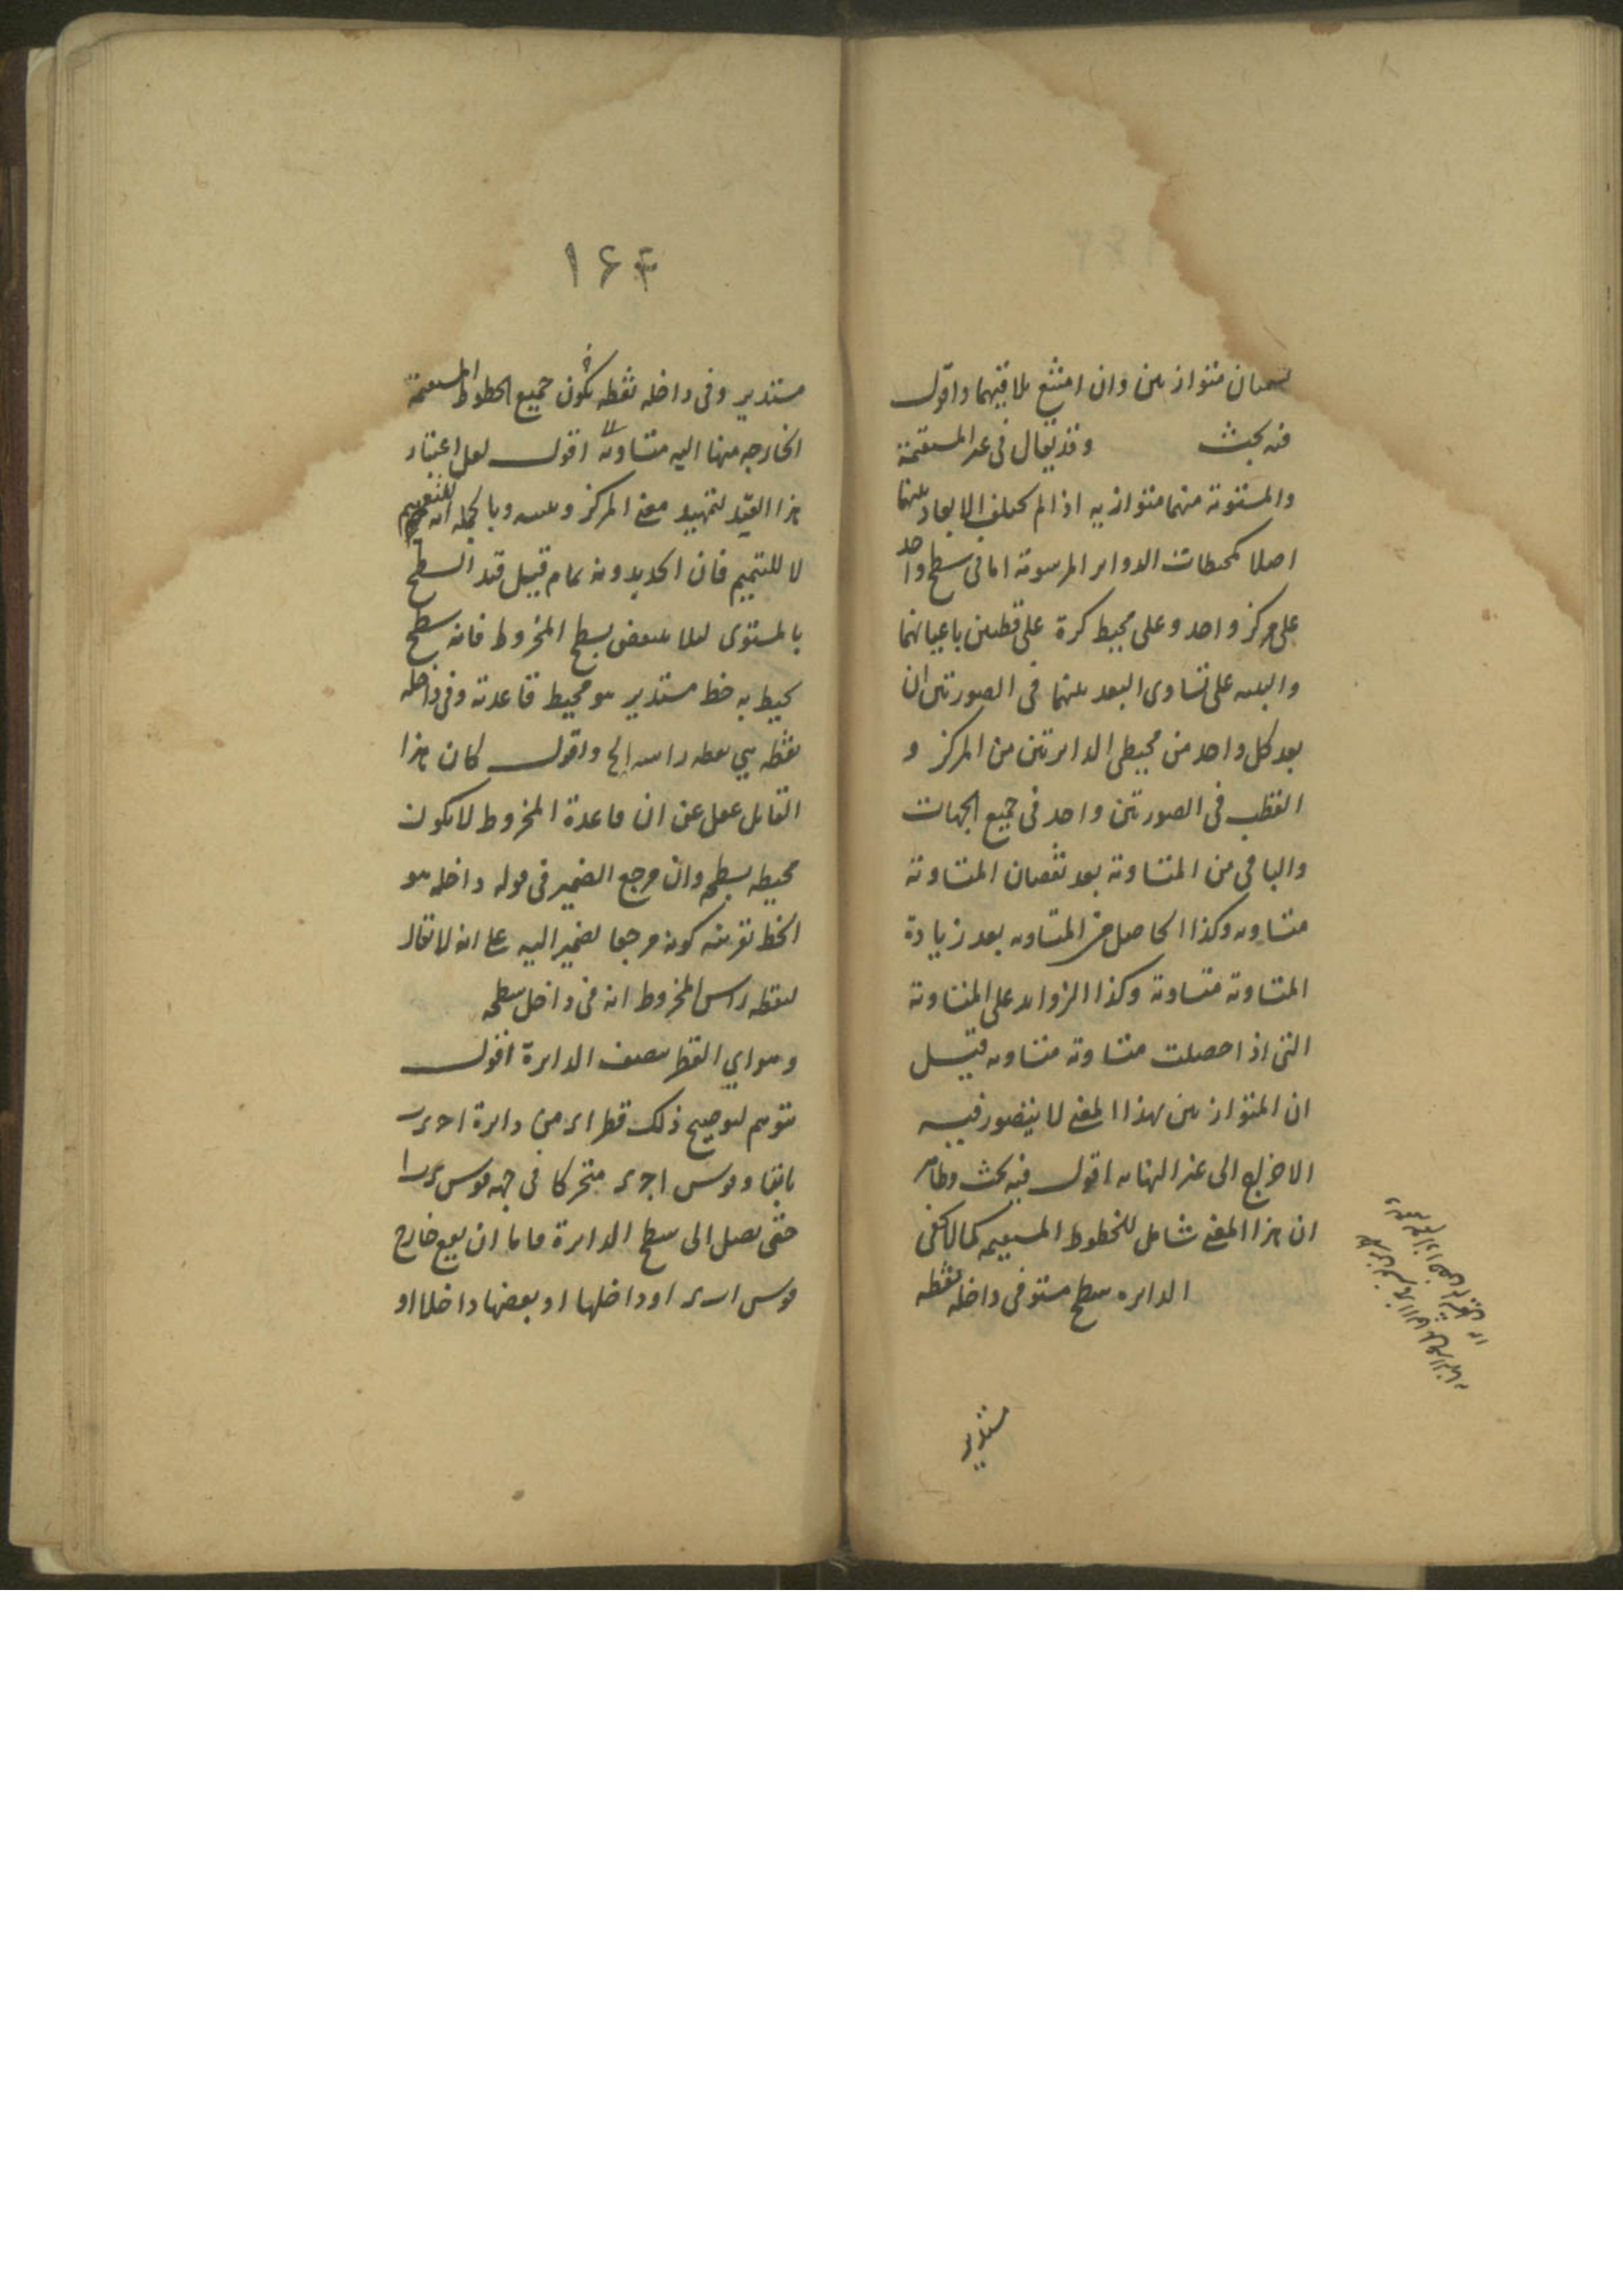 يسميان متوازيين وان امتنع تلاقيهما واقول
فيه بحث وقد يقال في غير المستقيمة
والمستوية منهما متوازيه اذا لم يختلف الابعاد بينهما
اصلا كمحيطات الدواير المرسومة اما في سطح واحد
على مركز واحد وعلى محيط كرة على قطبين باعيانهما
والبينه على تساوى البعد بينهما في الصورتين ان
بعد كل واحد من محيطى الدايرتين من المركز و
القطب في الصورتين واحد في جميع الجهات
والباقي من المتساوية بعد نقصان المتساوية
متساويه وكذا الحاصل من المتساويه بعد زيادة
المتساوية متساوية وكذا الزوايد على المتساوية
التى اذا حصلت متساوية متساويه قيل
ان المتوازيين بهذا المعنى لا يتصور فيه
الاخراج الى غير النهايه اقول فيه بحث وظاهر
ان هذا المعنى شامل للخطوط المستقيمه كما لا يخفى
الدايره سطح مستو في داخله نقطه
مستدير
١٦٤
مستدير وفي داخله نقطه يكون جميع الخطوط المستقيمة
الخارجه منها اليه متساوية اقول لعل اعتبار
هذا القيد لتمهيد معنى المركز وبالجمله انه للتعميم
لا للتتميم فان الحد بدونه تمام قيل قيد السطح
بالمستوى لئلا ينتقض بسطح المخروط فانه سطح
يحيط به خط مستدير هو محيط قاعدته وفي داخله
نقطه هي نقطه راسه الخ واقول كان هذا
القايل غفل عن ان قاعدة المخروط لا يكون
محيطه بسطحه وان مرجع الضمير في قوله داخله هو
الخط بقرينه كونه مرجعا لضمير اليه على انه لا يقال
لنقطه راس المخروط انه في داخل سطحه
وهو اي القطر ينصف الدايرة اقول
نتوهم لتوضيح ذلك قطر من دايرة
ثابتا وقوس متحركا في جهه قوس
حتى يصل الى سطح الدايرة فاما ان يقع خارج
قوس او داخلها او بعضها داخلا او